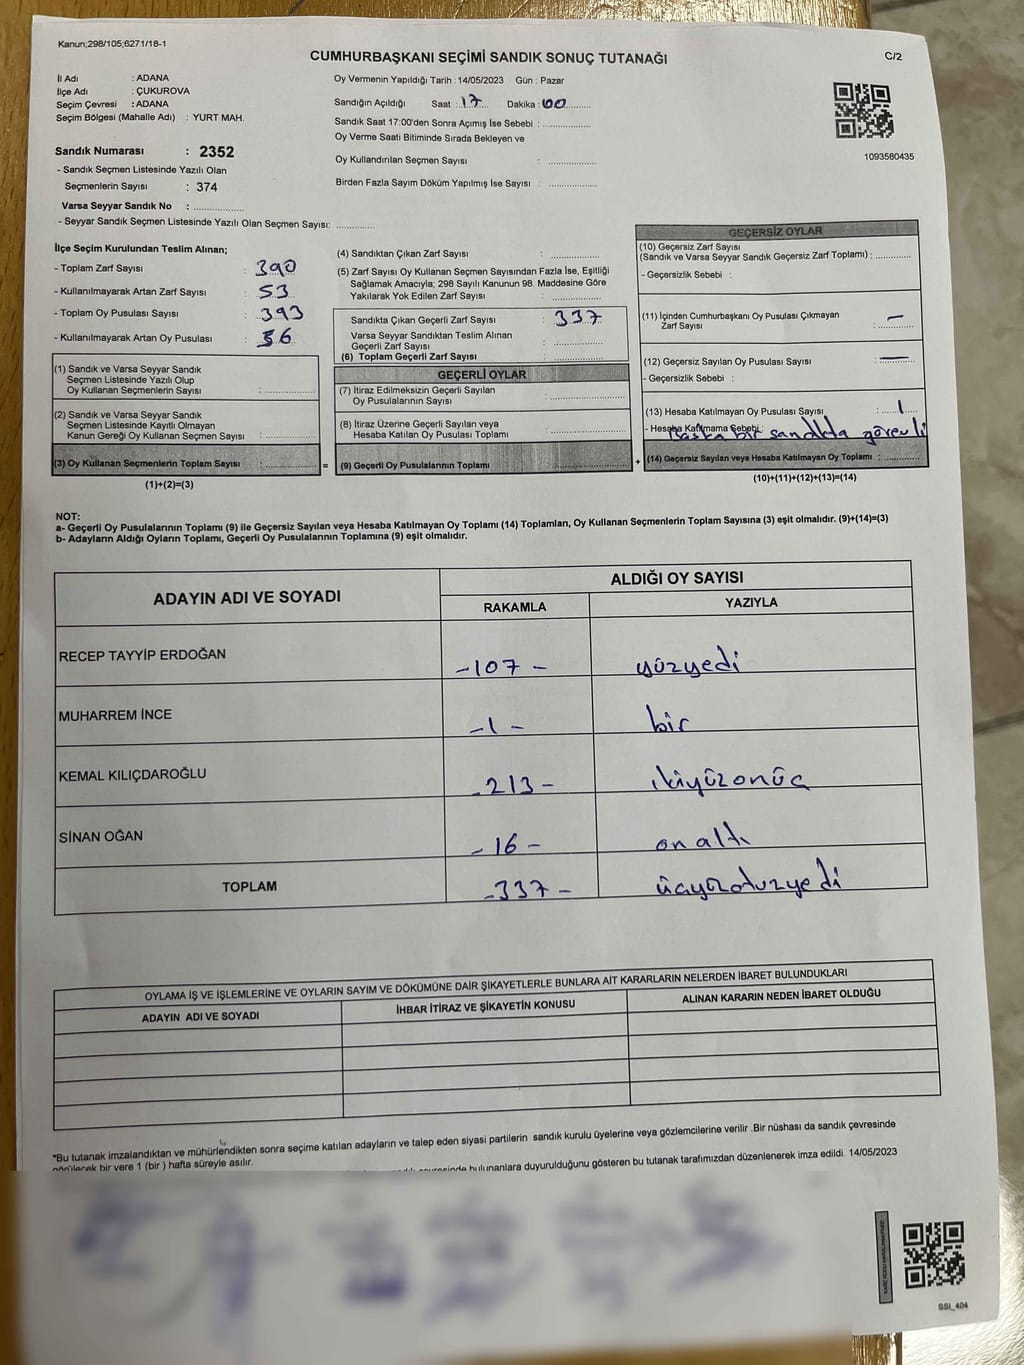 Kanun;298/105;6271/18-1
CUMHURBAŞKANI SEÇİMİ SANDIK SONUÇ TUTANAĞI
C/2
İl Adı : ADANA
İlçe Adı : ÇUKUROVA
Seçim Çevresi : ADANA
Seçim Bölgesi (Mahalle Adı) : YURT MAH.
Sandık Numarası : 2352
- Sandık Seçmen Listesinde Yazılı Olan
Seçmenlerin Sayısı : 374
Varsa Seyyar Sandık No : ..............
- Seyyar Sandık Seçmen Listesinde Yazılı Olan Seçmen Sayısı: ............
Oy Vermenin Yapıldığı Tarih : 14/05/2023 Gün : Pazar
Sandığın Açıldığı Saat : 17 Dakika : 00
Sandık Saat 17:00'den Sonra Açımış İse Sebebi : ..............
Oy Verme Saati Bitiminde Sırada Bekleyen ve
Oy Kullandırılan Seçmen Sayısı : ..............
Birden Fazla Sayım Döküm Yapılmış İse Sayısı : ..............
1093580435
İlçe Seçim Kurulundan Teslim Alınan;
- Toplam Zarf Sayısı : 390
- Kullanılmayarak Artan Zarf Sayısı : 53
- Toplam Oy Pusulası Sayısı : 393
- Kullanılmayarak Artan Oy Pusulası : 56
(1) Sandık ve Varsa Seyyar Sandık
Seçmen Listesinde Yazılı Olup
Oy Kullanan Seçmenlerin Sayısı : ..............
(2) Sandık ve Varsa Seyyar Sandık
Seçmen Listesinde Kayıtlı Olmayan
Kanun Gereği Oy Kullanan Seçmen Sayısı : ..............
(3) Oy Kullanan Seçmenlerin Toplam Sayısı : ..............
(1)+(2)=(3)
=
(4) Sandıktan Çıkan Zarf Sayısı : ..............
(5) Zarf Sayısı Oy Kullanan Seçmen Sayısından Fazla İse, Eşitliği
Sağlamak Amacıyla; 298 Sayılı Kanunun 98. Maddesine Göre
Yakılarak Yok Edilen Zarf Sayısı : ..............
Sandıkta Çıkan Geçerli Zarf Sayısı : 337
Varsa Seyyar Sandıktan Teslim Alınan
Geçerli Zarf Sayısı : ..............
(6) Toplam Geçerli Zarf Sayısı : ..............
GEÇERLİ OYLAR
(7) İtiraz Edilmeksizin Geçerli Sayılan
Oy Pusulalarının Sayısı : ..............
(8) İtiraz Üzerine Geçerli Sayılan veya
Hesaba Katılan Oy Pusulası Toplamı : ..............
(9) Geçerli Oy Pusulalarının Toplamı : ..............
+
GEÇERSİZ OYLAR
(10) Geçersiz Zarf Sayısı
(Sandık ve Varsa Seyyar Sandık Geçersiz Zarf Toplamı) : ............
- Geçersizlik Sebebi :
(11) İçinden Cumhurbaşkanı Oy Pusulası Çıkmayan
Zarf Sayısı : —
(12) Geçersiz Sayılan Oy Pusulası Sayısı : —
- Geçersizlik Sebebi :
(13) Hesaba Katılmayan Oy Pusulası Sayısı : 1
- Hesaba Katılmama Sebebi : Başka bir sandıkta görevli
(14) Geçersiz Sayılan veya Hesaba Katılmayan Oy Toplamı : ............
(10)+(11)+(12)+(13)=(14)
NOT:
a- Geçerli Oy Pusulalarının Toplamı (9) ile Geçersiz Sayılan veya Hesaba Katılmayan Oy Toplamı (14) Toplamları, Oy Kullanan Seçmenlerin Toplam Sayısına (3) eşit olmalıdır. (9)+(14)=(3)
b- Adayların Aldığı Oyların Toplamı, Geçerli Oy Pusulalarının Toplamına (9) eşit olmalıdır.
ADAYIN ADI VE SOYADI
ALDIĞI OY SAYISI
RAKAMLA YAZIYLA
RECEP TAYYİP ERDOĞAN -107- yüzyedi
MUHARREM İNCE -1- bir
KEMAL KILIÇDAROĞLU -213- ikiyüzonüç
SİNAN OĞAN -16- on altı
TOPLAM -337- üçyüzotuzyedi
OYLAMA İŞ VE İŞLEMLERİNE VE OYLARIN SAYIM VE DÖKÜMÜNE DAİR ŞİKAYETLERLE BUNLARA AİT KARARLARIN NELERDEN İBARET BULUNDUKLARI
ADAYIN ADI VE SOYADI İHBAR İTİRAZ VE ŞİKAYETİN KONUSU ALINAN KARARIN NEDEN İBARET OLDUĞU
*Bu tutanak imzalandıktan ve mühürlendikten sonra seçime katılan adayların ve talep eden siyasi partilerin sandık kurulu üyelerine veya gözlemcilerine verilir .Bir nüshası da sandık çevresinde
görülecek bir yere 1 (bir ) hafta süreyle asılır.
bulunanlara duyurulduğunu gösteren bu tutanak tarafımızdan düzenlenerek imza edildi. 14/05/2023
SSI_404